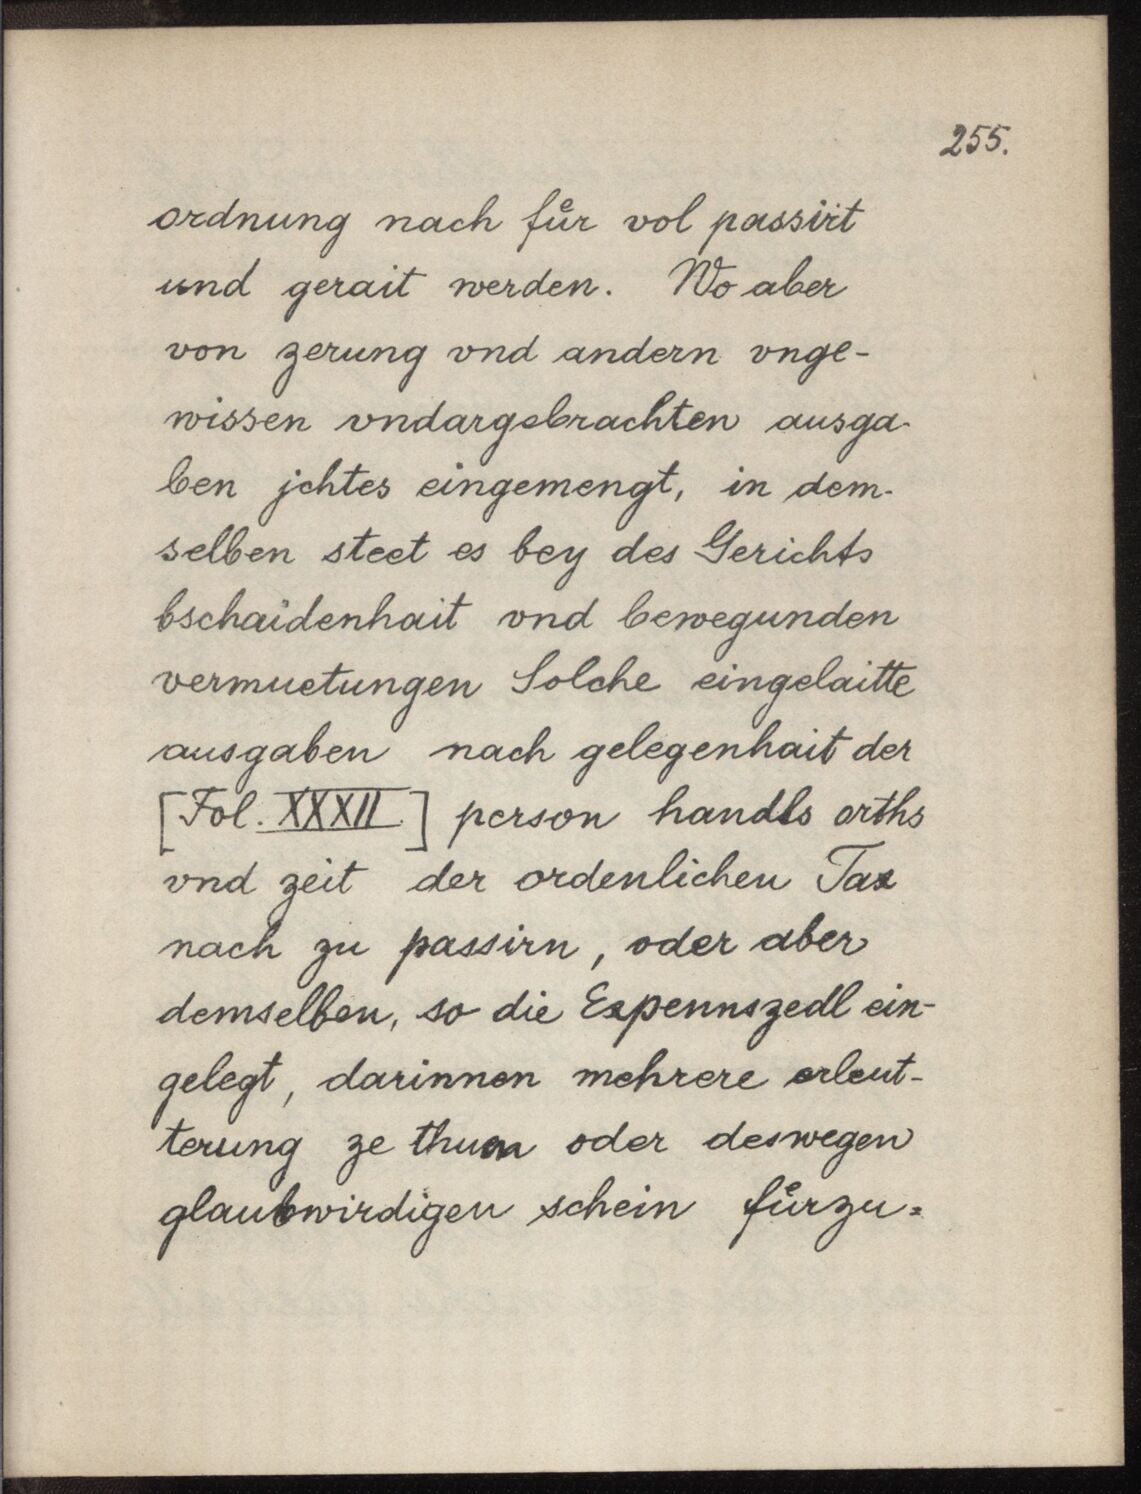 255.
ordnung nach fůr vol passirt
und gerait werden. Wo aber
von zerung vnd andern vnge-
wissen vndargebrachten ausga-
ben jchtes eingemengt, in dem-
selben steet es bey des Gerichts
bschaidenhait vnd bewegunden
vermuetungen Solche eingelaitte
ausgaben nach gelegenhait der
[Fol. XXXII.] person handls orths
vnd zeit der ordenlichen Tax
nach zu passirn, oder aber
demselben, so die Expennszedl ein-
gelegt, darinnen mehrere erleut-
terung ze thuen oder deswegen
glaubwirdigen schein fůrzu=